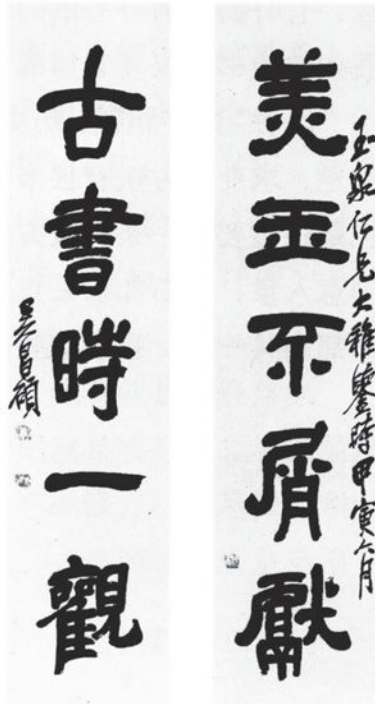 美玉不屑獻
玉泉仁兄大雅鑒時甲寅六月
古書時一觀
吳昌碩